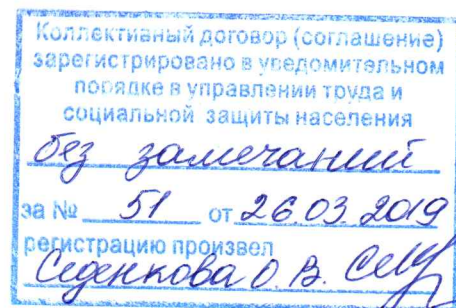 Коллективный договор (соглашение)
зарегистрировано в уведомительном
порядке в управлении труда и
социальной защиты населения
без замечаний
за № 51 от 26.03.2019
регистрацию произвел
Седенкова О. В.